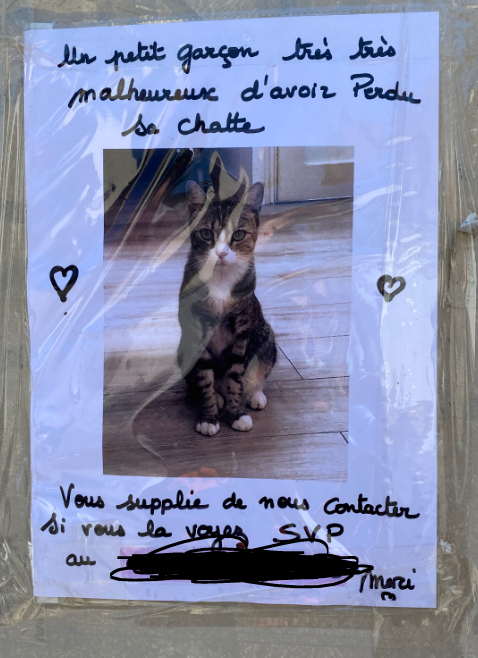 Un petit garçon très très
malheureux d'avoir Perdu
sa chatte
Vous supplie de nous contacter
si vous la voyez SVP
au
Merci